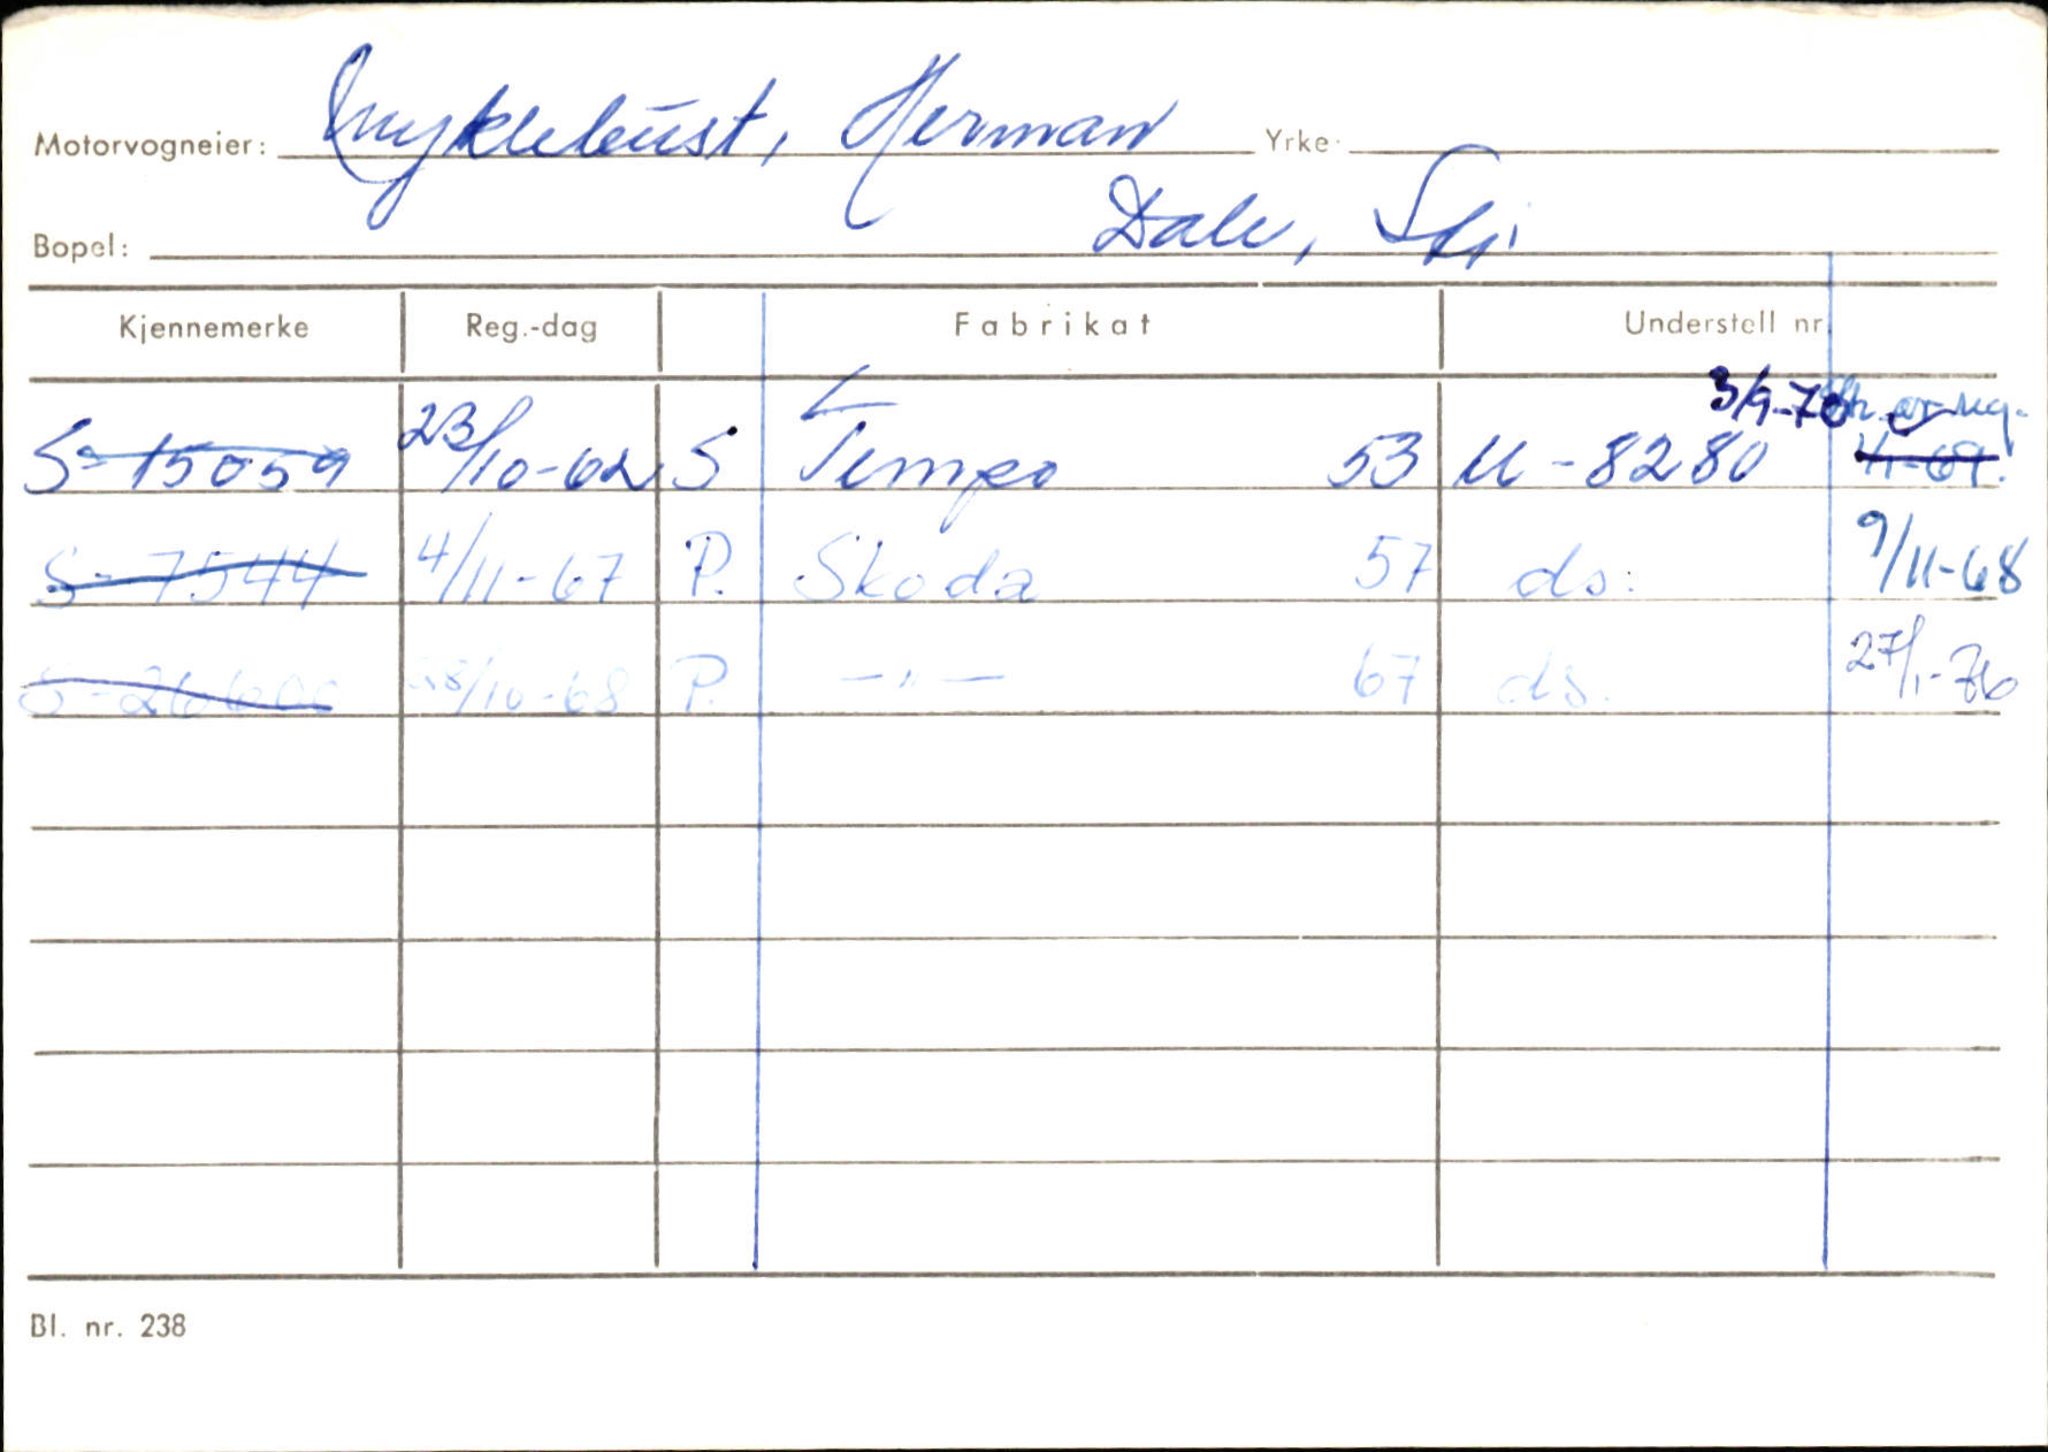 Motorvogneier: Myklebust, Herman Yrke:
Bopel: Dale, Sfj.
Kjennemerke Reg.-dag Fabrikat Understell nr
3/9-70 av reg.
S-15059 23/10-62 S Tempo 53 M-8280 1/1-69.
S-7544 4/11-67 P. Skoda 57 ds: 9/11-68
28/10-68 P. —"— 67 ds. 27/1-76
Bl. nr. 238